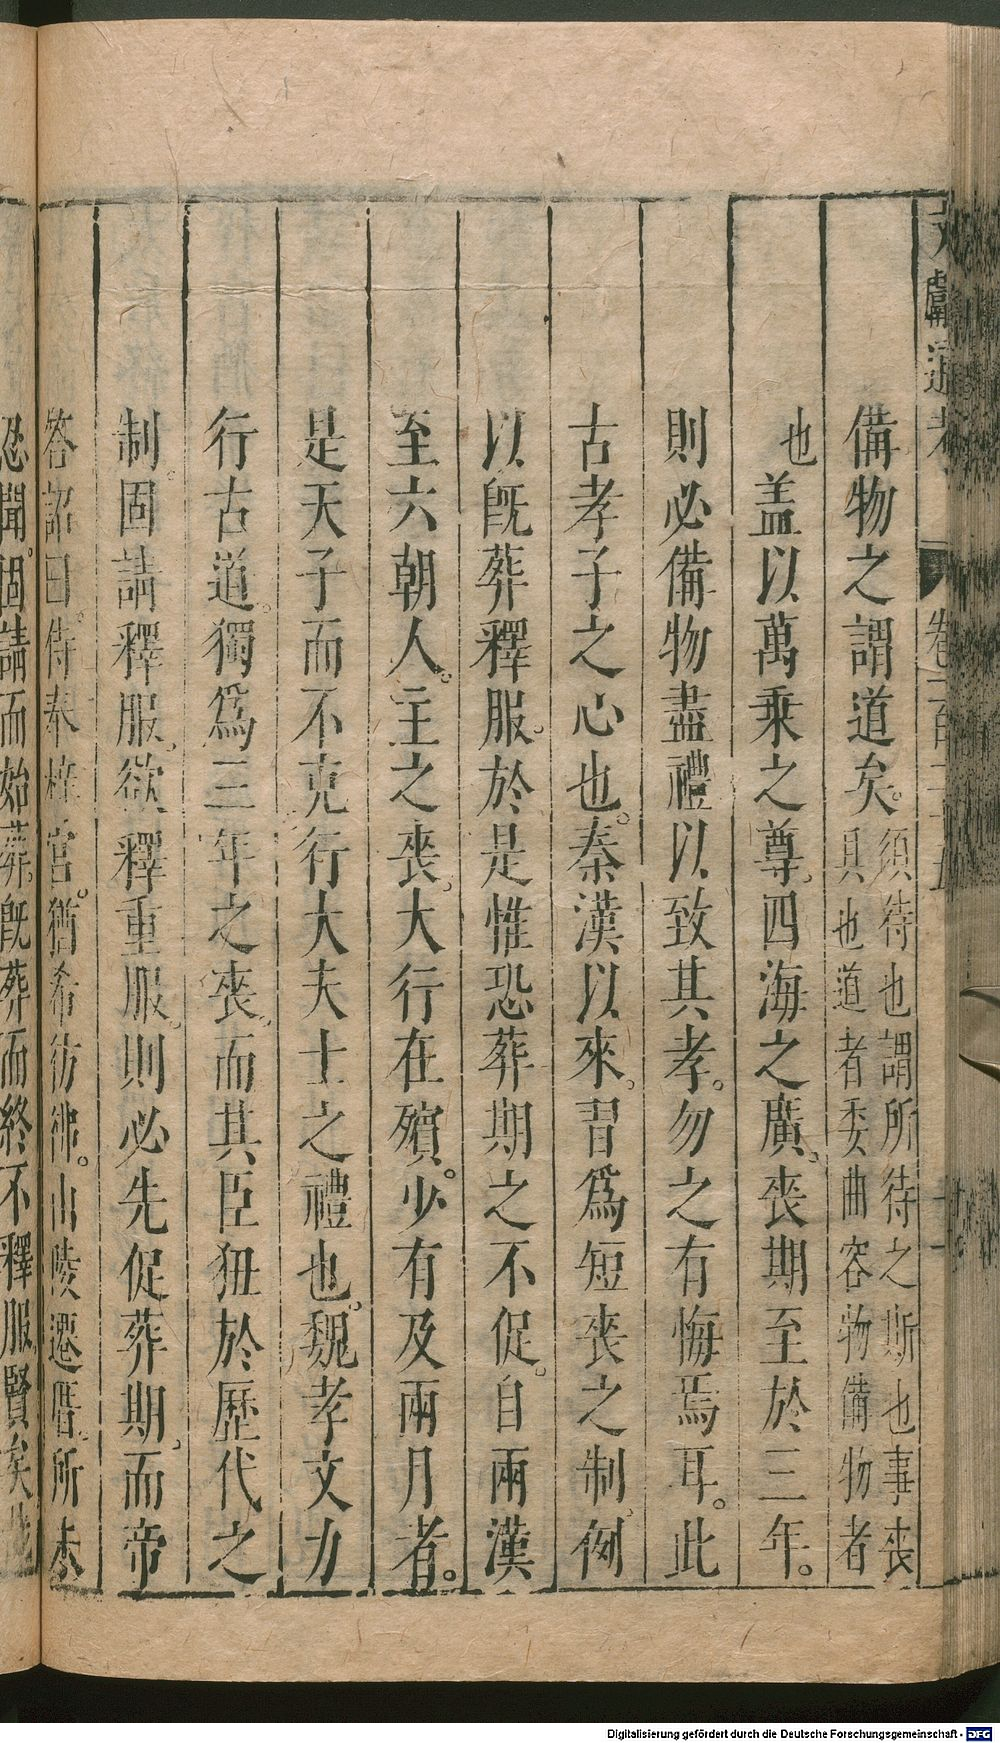 備物之謂道矣。須待也謂所待之斯也事喪
具也道者委曲容物備物者
也蓋以萬乗之尊。四海之廣。喪期至於三年。
則必備物盡禮以致其孝。勿之有悔焉耳。此
古孝子之心也。秦漢以來。習爲短喪之制。例
以既葬釋服。於是惟恐葬期之不促。自兩漢
至六朝人。主之喪。大行在殯。少有及兩月者。
是天子而不克行大夫士之禮也。魏孝文力
行古道。獨爲三年之喪。而其臣狃於歷代之
制。固請釋服。欲釋重服。則必先促葬期。而帝
答詔曰。侍奉梓宮。猶希彷彿。山陵遷厝。所未
忍聞。固請而始葬。既葬而終不釋服。賢矣
Digitalisierung gefördert durch die Deutsche Forschungsgemeinschaft - DFG